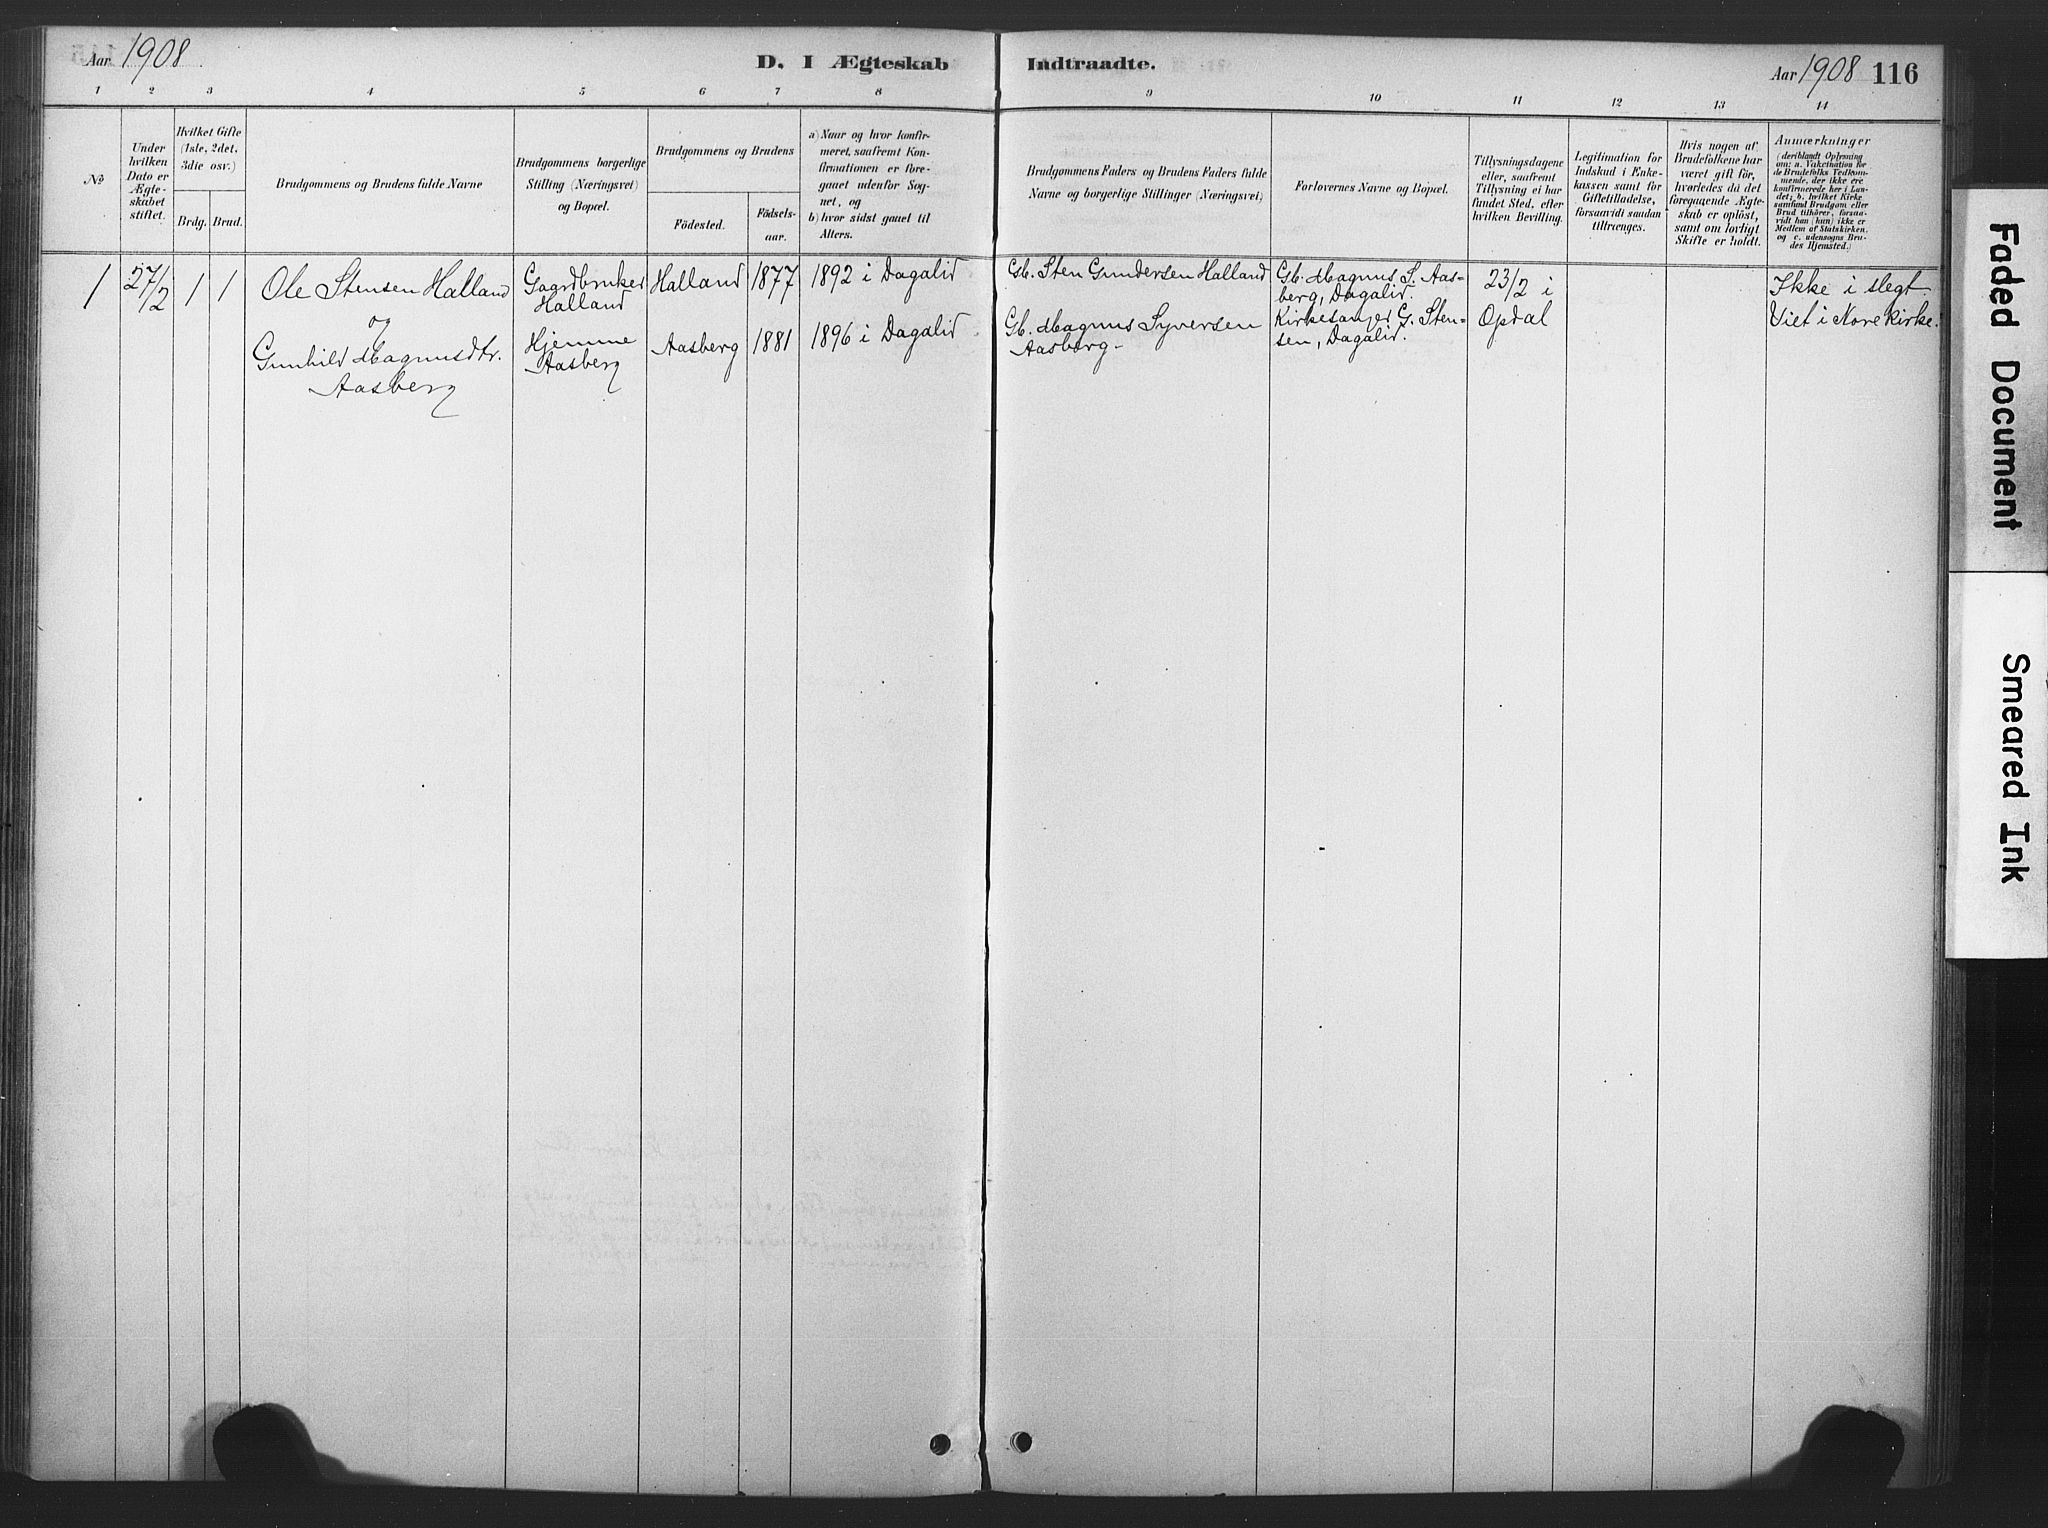 Aar 1908.
D. I Ægteskab Indtraadte.
Aar 1908 116
1 2 3 4 5 6 7 8 9 10 11 12 13 14
№
Under
hvilken
Dato er
Ægte-
skabet
stiftet.
Hvilket Gifte
(1ste, 2det,
3die osv.)
Brdg. Brud.
Brudgommens og Brudens fulde Navne
Brudgommens borgerlige
Stilling (Næringsvei)
og Bopæl.
Brudgommens og Brudens
Födested.
Födsels-
aar.
a) Naar og hvor konfir-
meret, saafremt Kon-
firmationen er fore-
gaaet udenfor Sog-
net, og
b) hvor sidst gaaet til
Alters.
Brudgommens Faders og Brudens Faders fulde
Navne og borgerlige Stillinger (Næringsvei)
Forlovernes Navne og Bopæl.
Tillysningsdagene
eller, saafremt
Tillysning ei har
fundet Sted, efter
hvilken Bevilling.
Legitimation for
Indskud i Enke-
kassen samt for
Giftetilladelse,
forsaavidt saadan
tiltrænges.
Hvis nogen af
Brudefolkene har
været gift för,
hvorledes da det
foregaaende Ægte-
skab er oplöst,
samt om lovligt
Skifte er holdt.
Anmærkninger
(deriblandt Oplysning
om: a. Vakcination for
de Brudefolks Vedkom-
mende, der ikke ere
konfirmerede her i Lan-
det; b. hvilket Kirke-
samfund Brudgom eller
Brud tilhörer, forsaa-
vidt han (hun) ikke er
Medlem af Statskirken,
og c. udensogns Bru-
des Hjemsted.)
1
27/2
1 1
Ole Stensen Halland
og
Gunhild Magnusdtr.
Aasberg
Gaardbruker
Halland
Hjemme
Aasberg
Halland
Aasberg
1877
1881
1892 i Dagalid
1896 i Dagalid
Gb. Sten Gundersen Halland
Gb. Magnus Syversen
Aasberg-
Gb. Magnus S. Aas-
berg, Dagalid.
Kirkesanger G. Sten-
sen, Dagalid.
23/2 i
Opdal
Ikke i slegt.
Viet i Nore kirke.
Faded Document
Smeared Ink